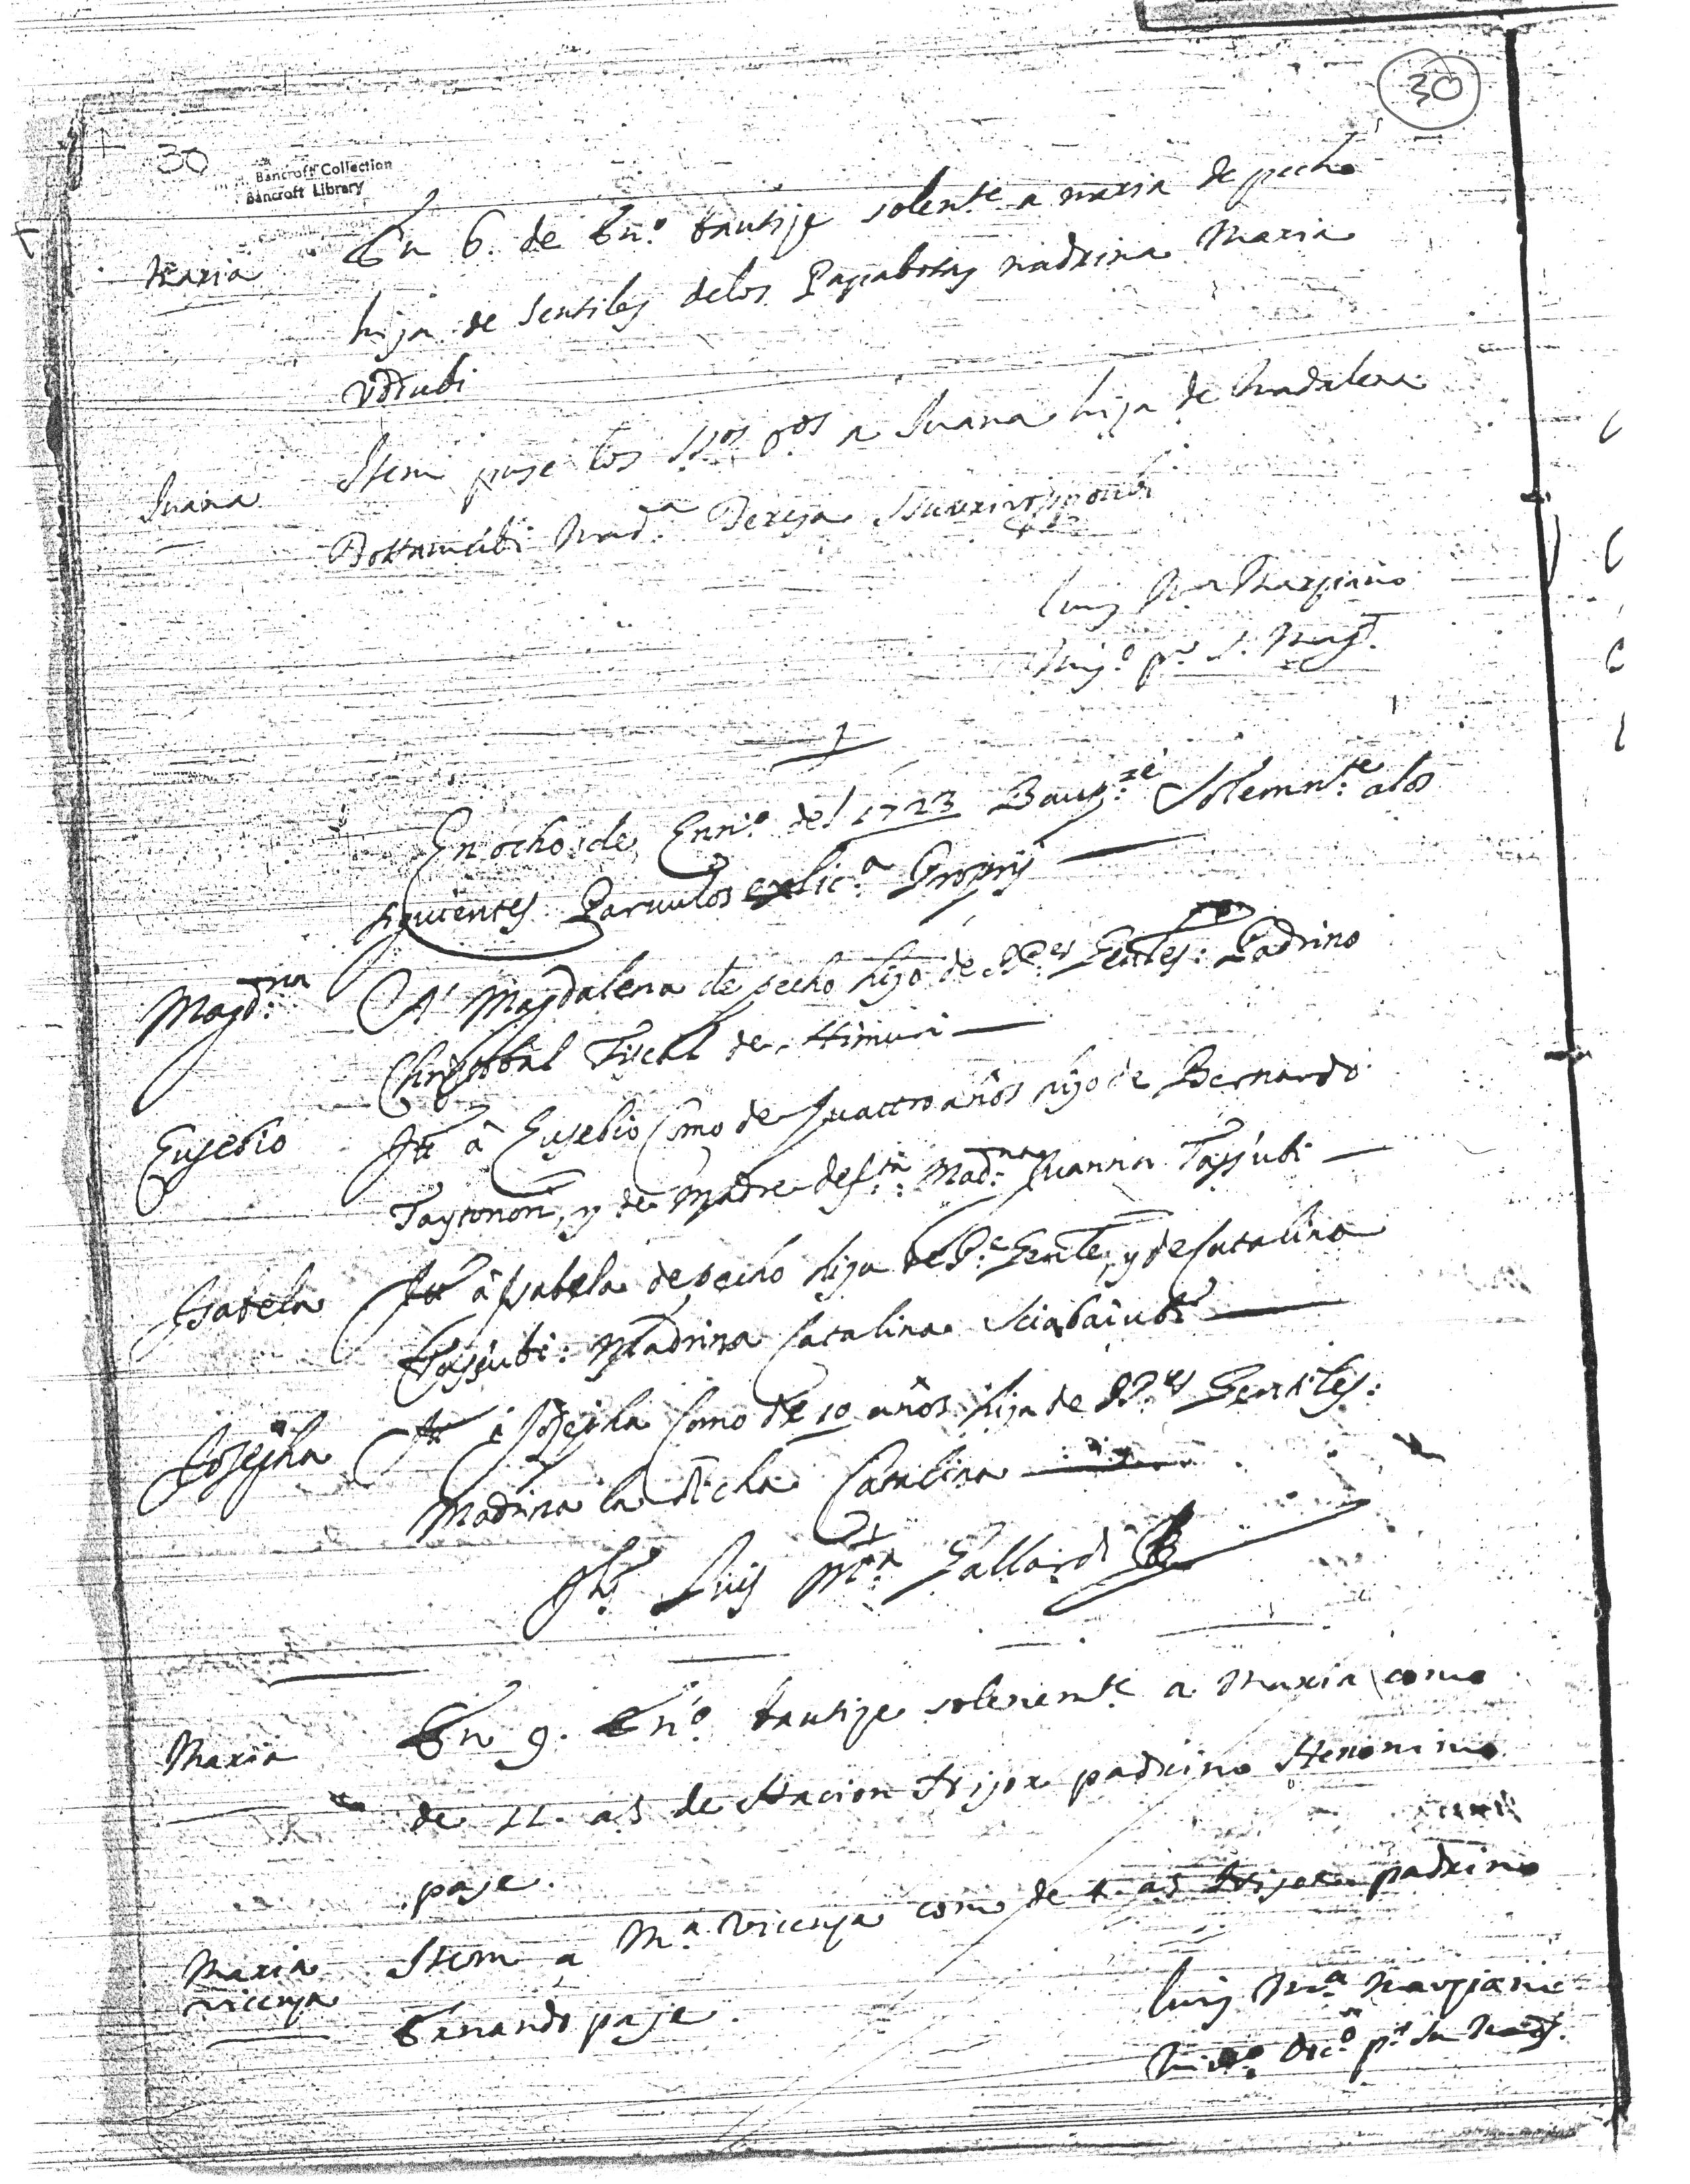 30
30
Bancroft Collection
Bancroft Library
Maria
En 6. de En.º bautise solente a maria de pecho
hija de Jentiles delos Papabotas madrina Maria
Vdiubi
Juana
Item puse los S.tos O.os a Juana hija de Madalena
Mad.a Teresa
Luis M.a Marsiano
Mis.º p.r S. Mag.d
En ocho de Enn.º del 1723 Baup.zé Solemn.te alos
siguientes Paruulos ex lic.a Proprij
Magd.na
A' Magdalena de pecho hijo de PP.es Gentles: Padrino
Christobal Fiscal de Himuri
Eusebio
Itt â Eusebio Como de Quattro años hijo de Bernardo
Taytonon, y de Madre def.ta Mad.na Juanna Tassubi
Isabela
Itt â Isabela de pecho hija de P.e Gentle, y de Catalina
Tassiubi: Madrina Catalina Sciabaiubi
Josepha
Itt â Josepha Como de 10 años hija de PP.es Gentiles:
Madrina la dicha Catalina
Jhs Luis M.a Gallardi
Maria
En 9. En.º bautise solenemte a Maria como
de 11. as de Nacion Nijora padrino Heronimo
paje.
Maria
Vicensa
Item a M.a Vicensa como de as Nijora padrino
Ernando paje.
Luis M.a Marsiano
Min.º Doc.º p.r Su Mag.d